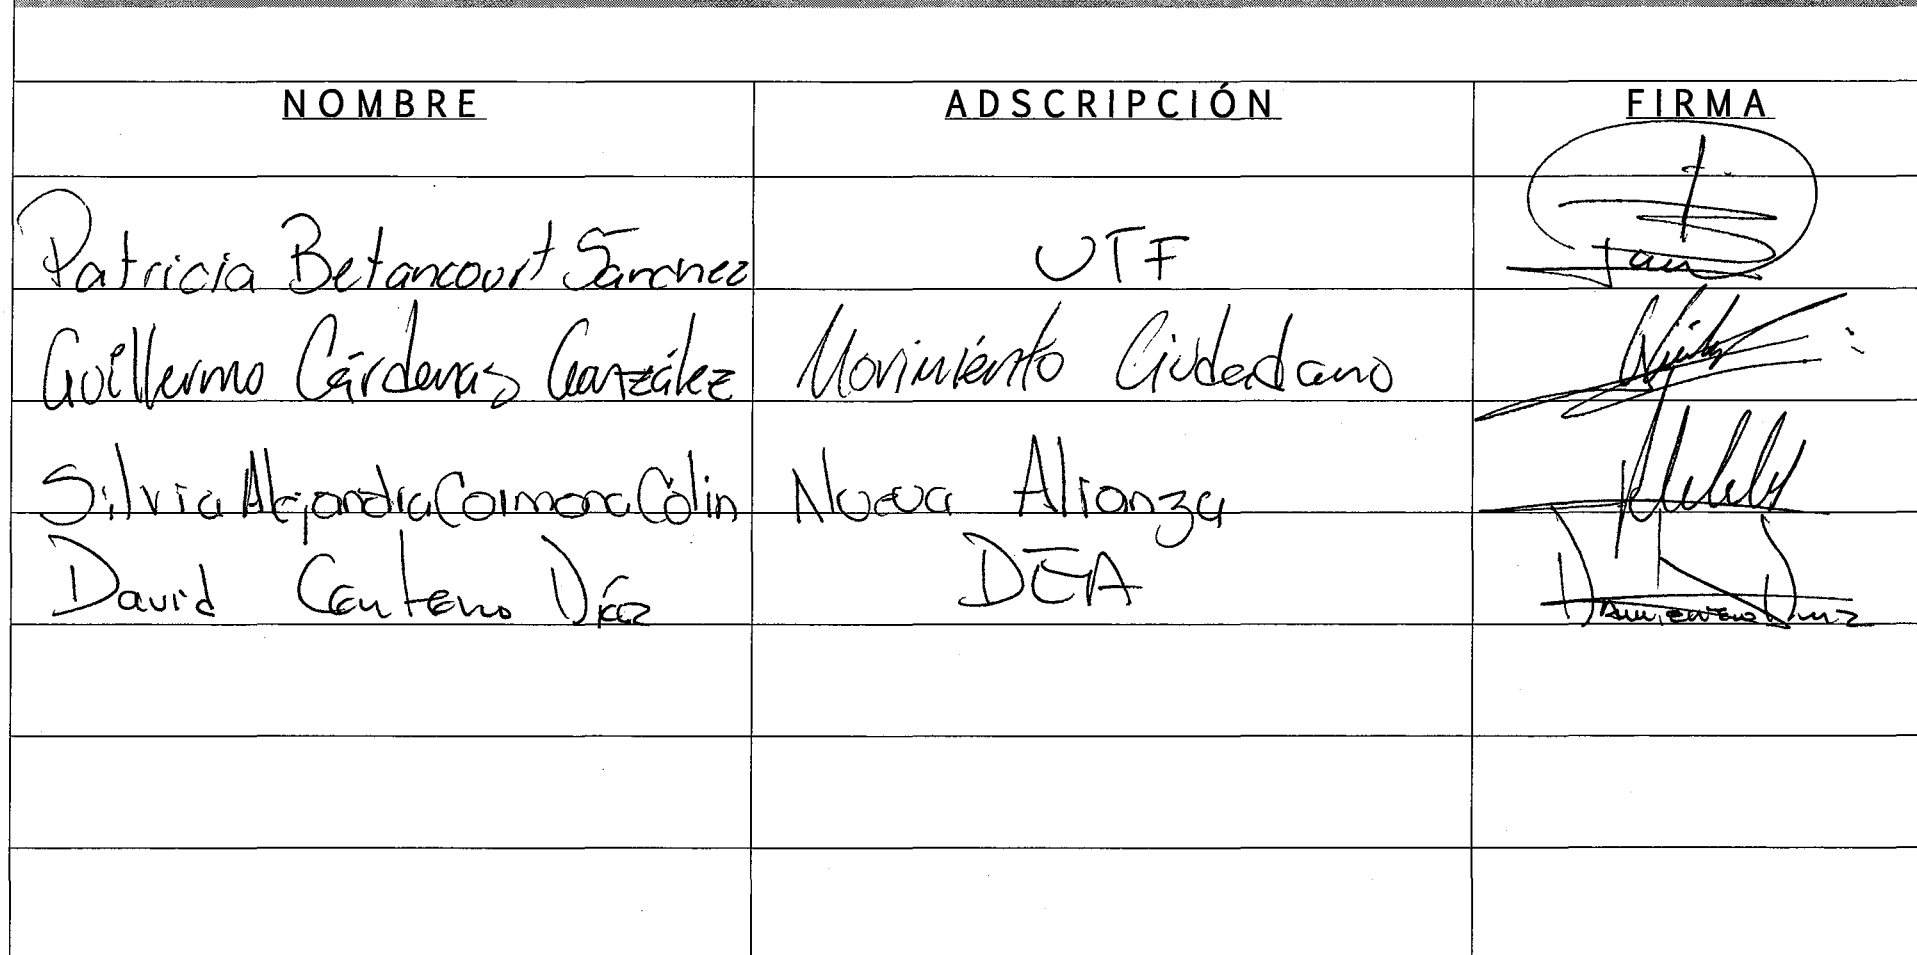 NOMBRE ADSCRIPCIÓN FIRMA
Patricia Betancourt Sánchez UTF
Guillermo Cárdenas González Movimiento Ciudadano
Silvia Alejandra Carmona Colín Nueva Alianza
David Centeno Díaz DEA